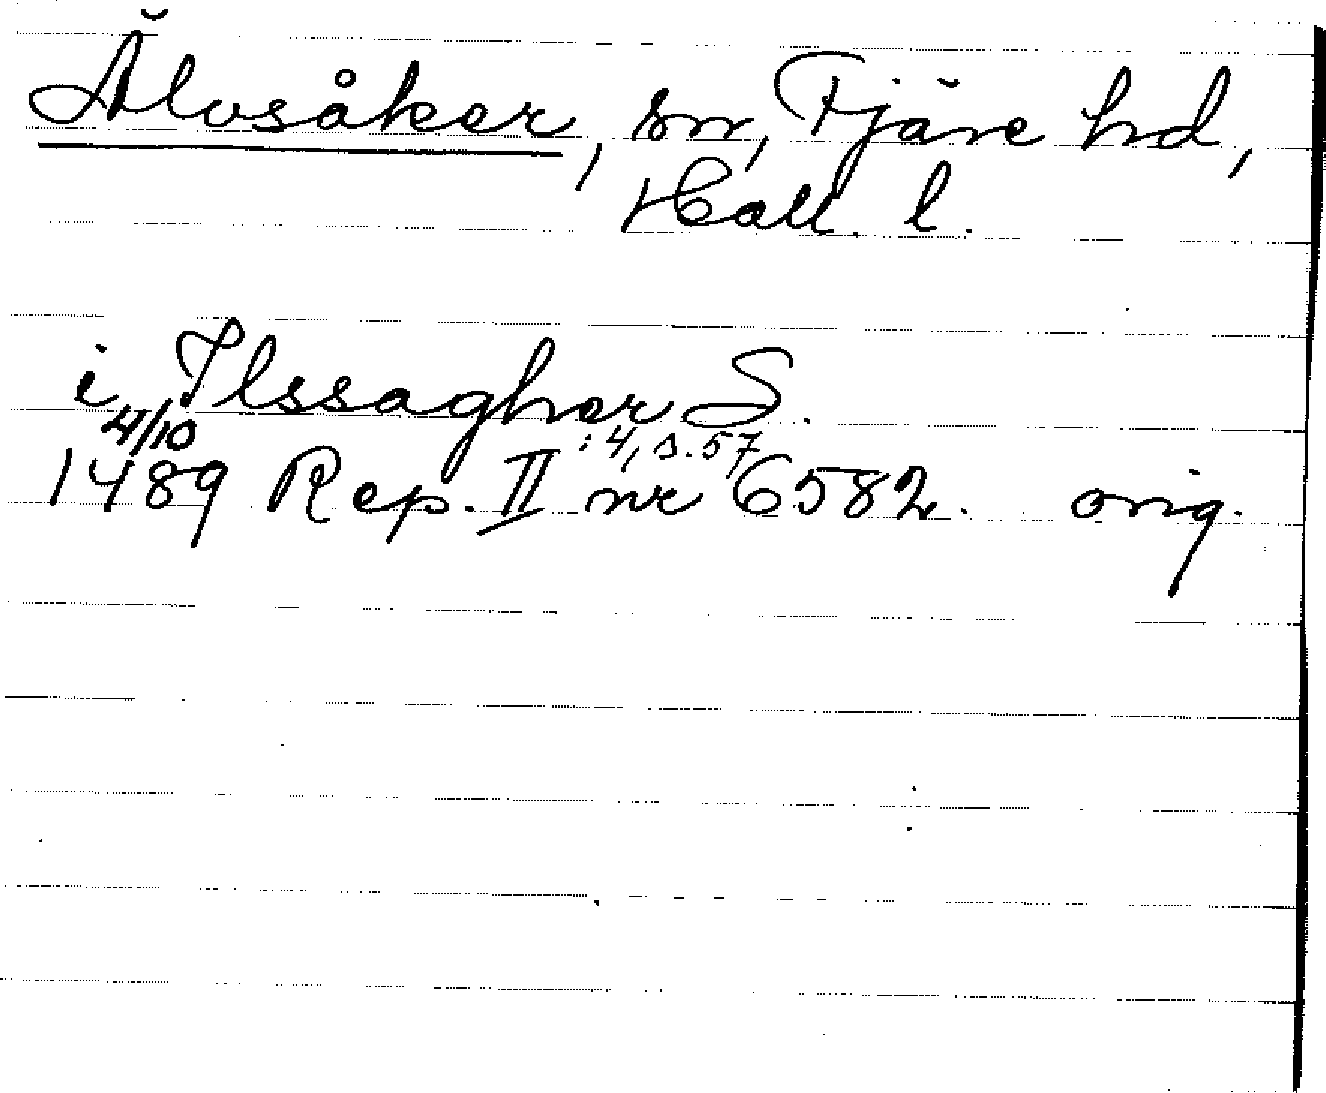 Älvsåker, sn, Fjäre hd,
Hall. l.
i Ilssagher S.
4/10
:4, s. 57
1489 Rep. II nr 6582. orig.